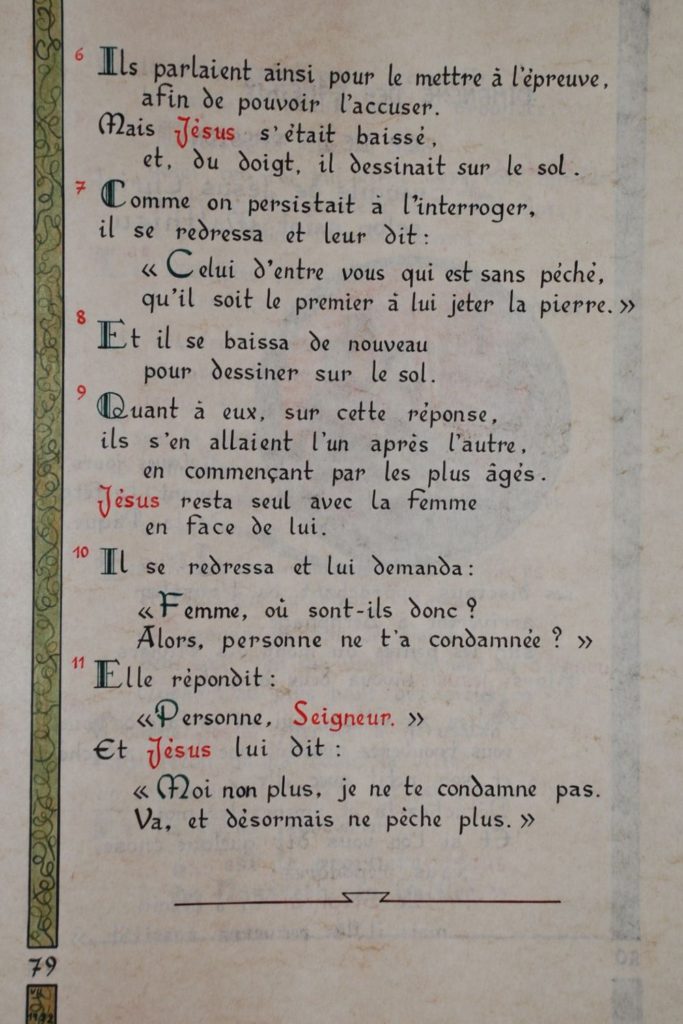 6 Ils parlaient ainsi pour le mettre à l'épreuve,
afin de pouvoir l'accuser.
Mais Jésus s'était baissé,
et, du doigt, il dessinait sur le sol.
7 Comme on persistait à l'interroger,
il se redressa et leur dit :
« Celui d'entre vous qui est sans péché,
qu'il soit le premier à lui jeter la pierre. »
8 Et il se baissa de nouveau
pour dessiner sur le sol.
9 Quant à eux, sur cette réponse,
ils s'en allaient l'un après l'autre,
en commençant par les plus âgés.
Jésus resta seul avec la femme
en face de lui.
10 Il se redressa et lui demanda :
« Femme, où sont-ils donc ?
Alors, personne ne t'a condamnée ? »
11 Elle répondit :
« Personne, Seigneur. »
Et Jésus lui dit :
« Moi non plus, je ne te condamne pas.
Va, et désormais ne pèche plus. »
79